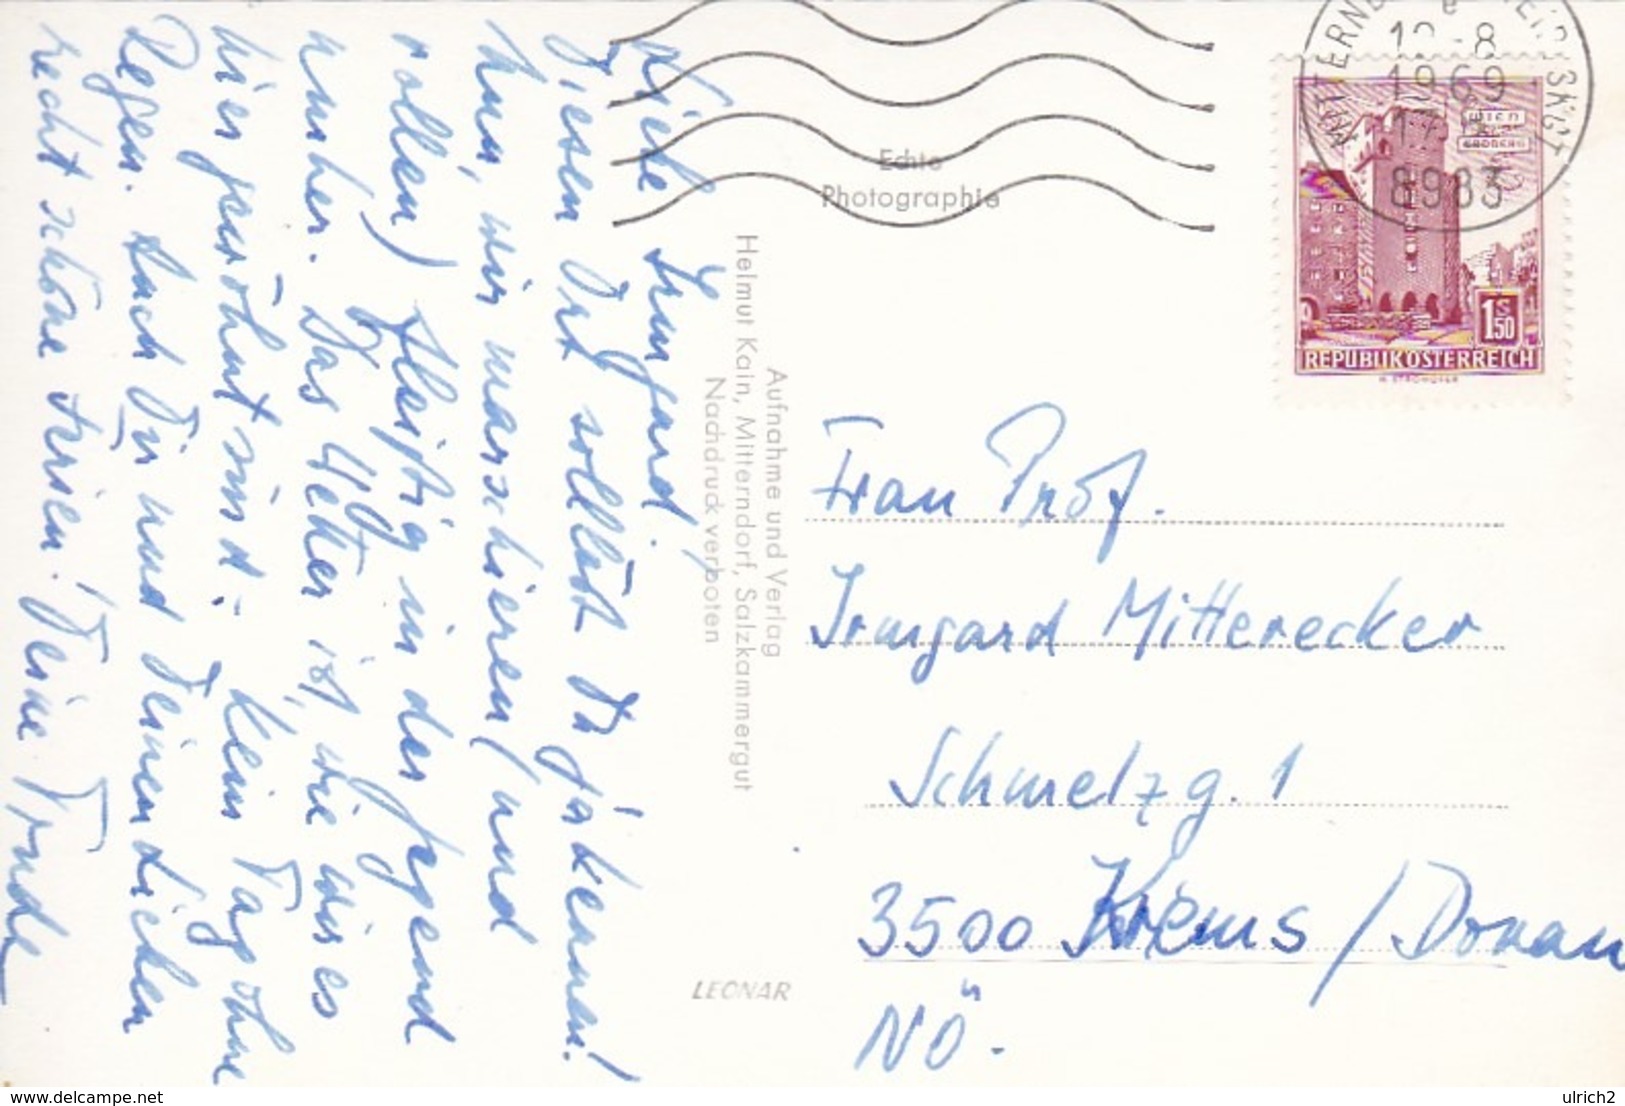 Liebe Irmgard!
Diesen Ort solltest Du ja kennen!
Nun, wir marschieren (und
rollen) fleißig in der Gegend
umher. Das Wetter ist, wie wir es
hier gewöhnt sind: kein Tag ohne
Regen. Auch Dir und Deinen Lieben
recht schöne Ferien! Deine Trude
Echte
Photographie
Aufnahme und Verlag
Helmut Kain, Mitterndorf, Salzkammergut
Nachdruck verboten
LEONAR
1969
8983
WIEN
ERDBERG
1 S 50
REPUBLIK ÖSTERREICH
Frau Prof.
Irmgard Mitterecker
Schmelzg. 1
3500 Krems / Donau
NÖ.
ulrich2